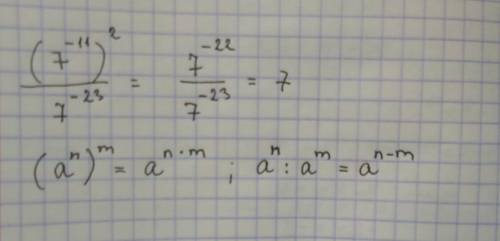 (7^-11)^2 / 7^-23 = 7^-22 / 7^-23 = 7
(a^n)^m = a^n·m ; a^n : a^m = a^n-m